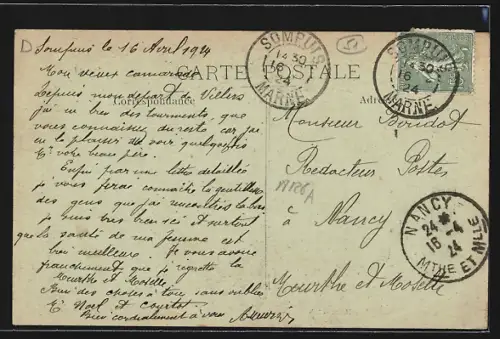 D
Sompuis le 16 Avril 1924
Mon vieux camarade
CARTE POSTALE
Correspondance
Adresse
SOMPUIS
14 30
16
24
MARNE
SOMPUIS
14 30
16
24
MARNE
Depuis mon départ de Villers
j'ai eu bien des tourments, que
vous connaissez du reste car j'ai
eu le plaisir de voir quelquefois
votre beau père.
Enfin par une lettre détaillée
je vous ferai connaître la gentillesse
des gens que j'ai rencontrés là bas
je suis très bien ici et surtout
que la santé de ma femme est
bien meilleure. Je vous avoue
franchement que je regrette la
Meurthe et Moselle.
Bien des choses à tous sans oublier
Noel et
Bien cordialement à vous
Monsieur
Redacteur Postes
à Nancy
Meurthe et Moselle
NANCY
24
16-4
24
MTHE ET MLLE